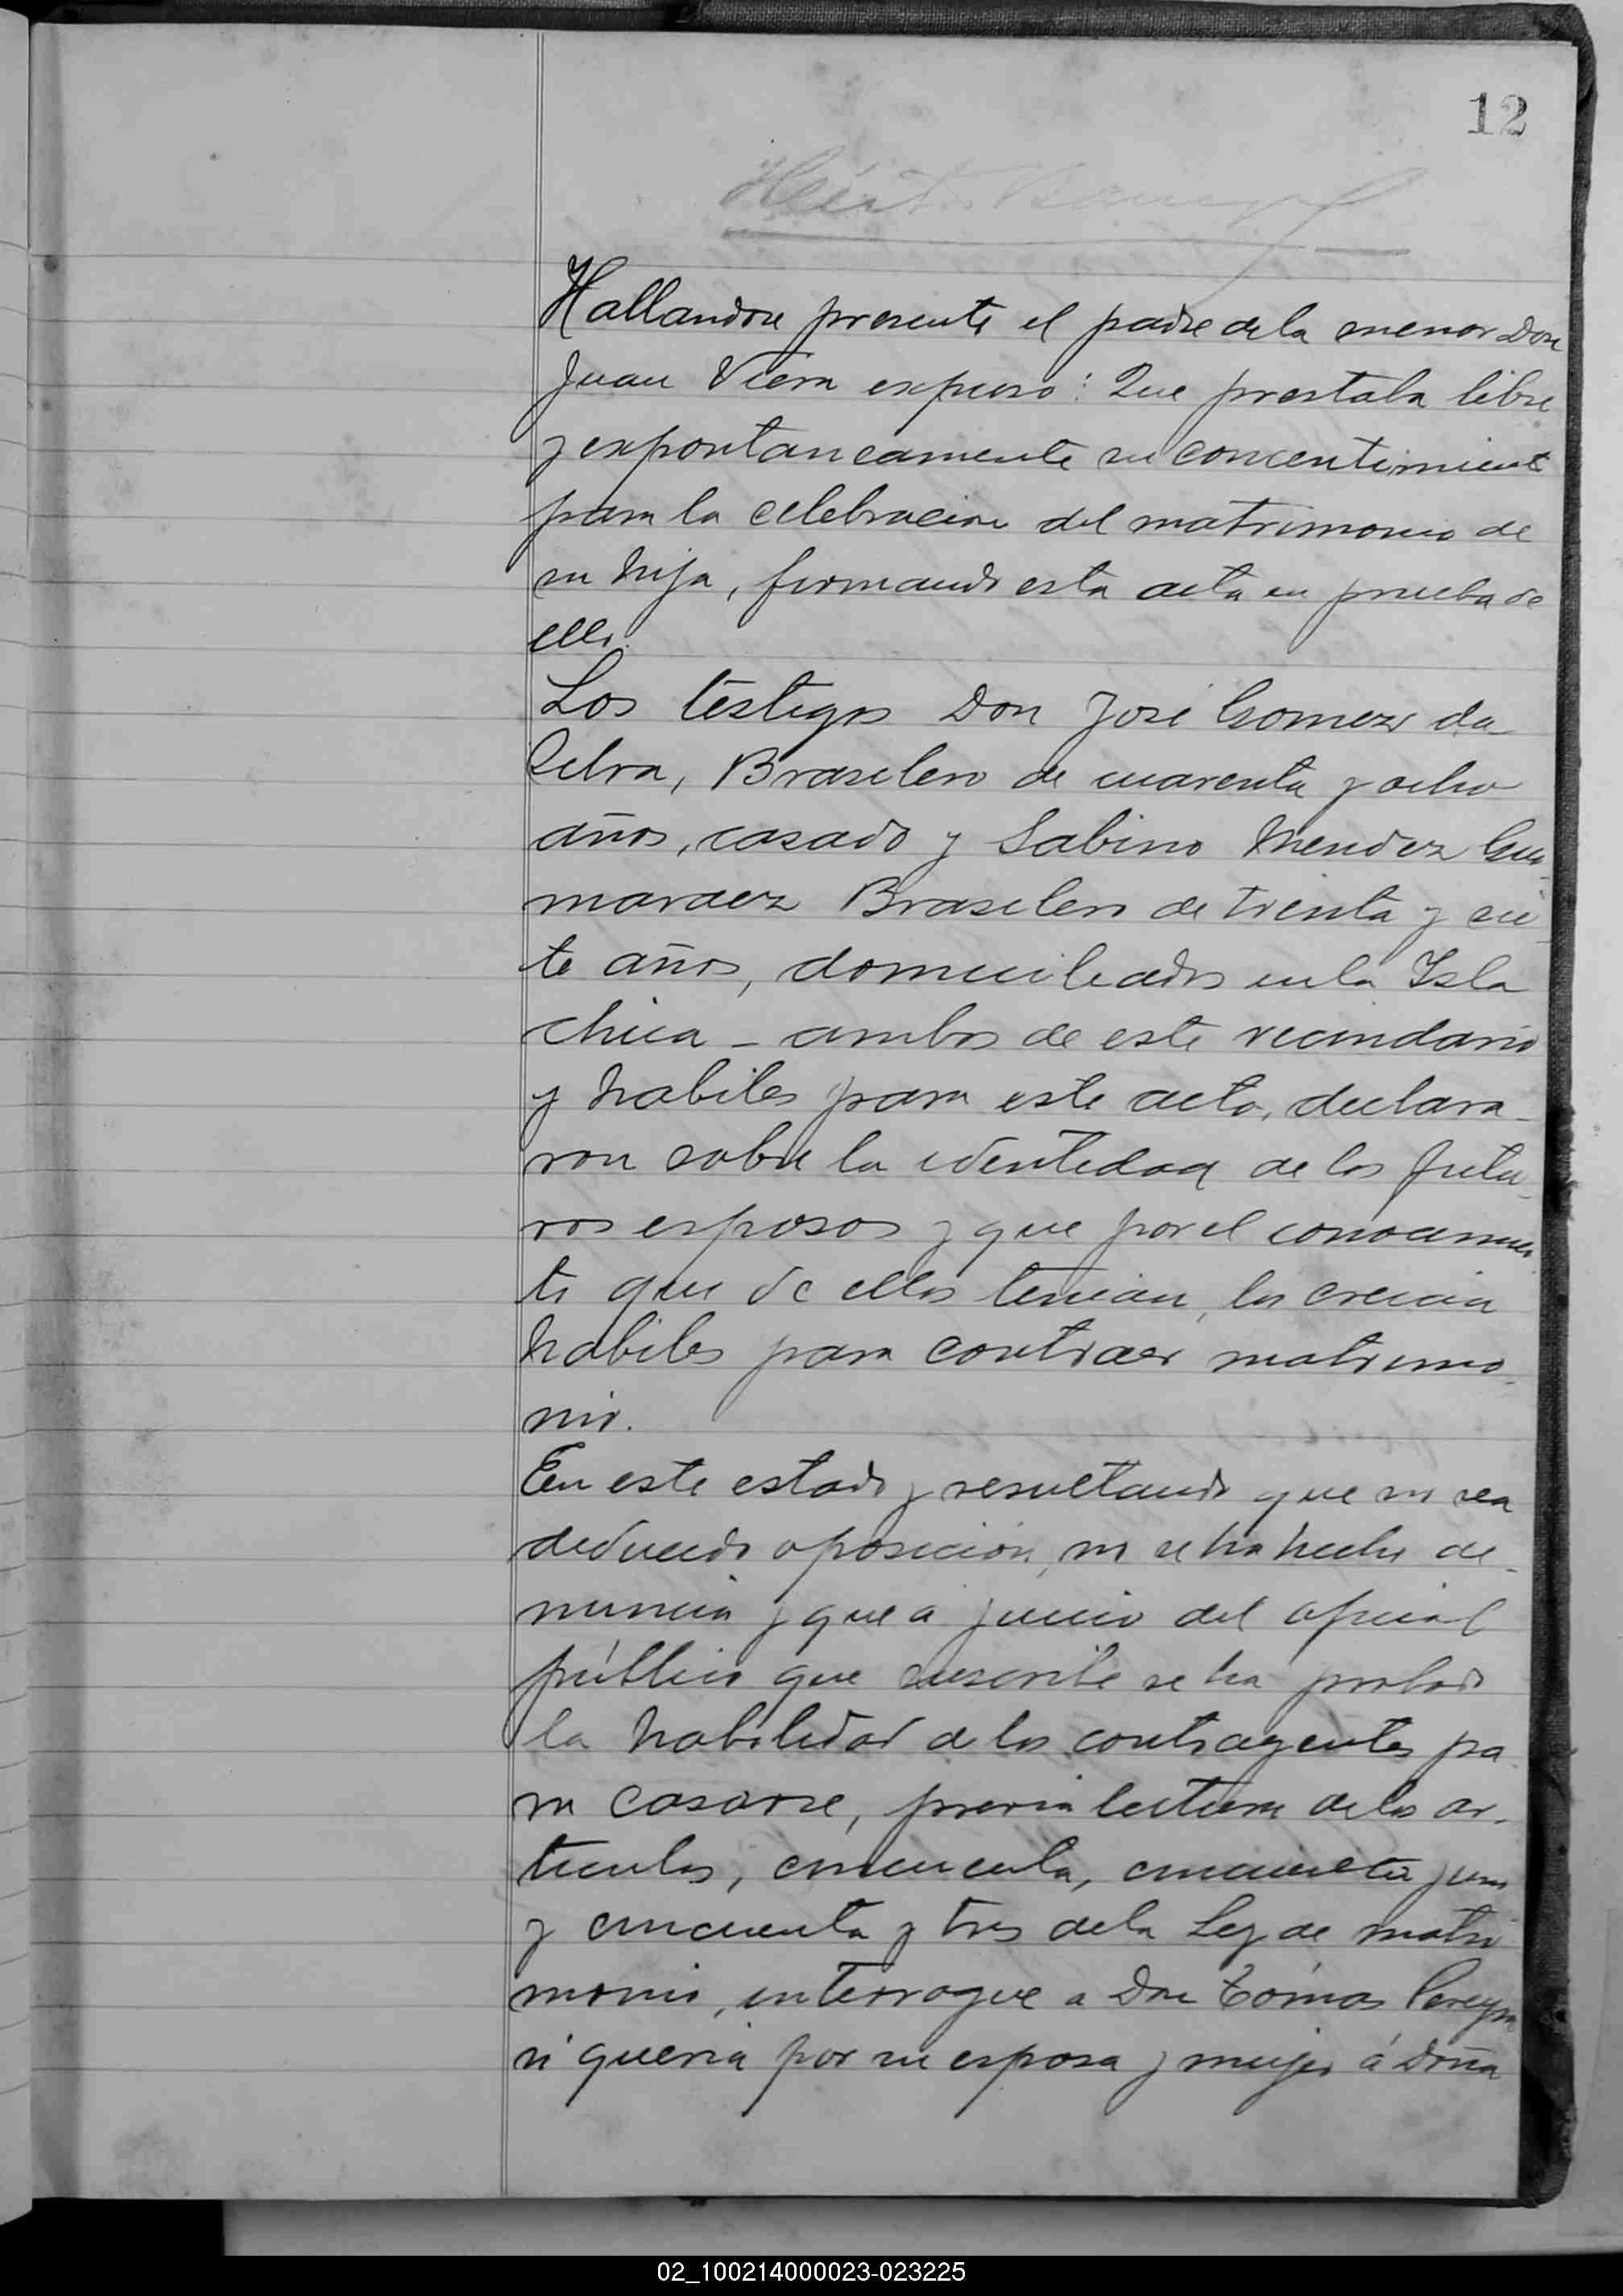 12
Hallandose presente el padre de la menor Don
Juan Viera expuso: Que prestaba libre
y expontaneamente su concentimiento
para la celebracion del matrimonio de
su hija, firmando esta acta en prueba de
ello.
Los testigos Don José Gomez da
Silva, Brasilero de cuarenta y ocho
años, casado y Sabino Mendez Gui-
maraez Brasilero de treinta y sie-
te años, domiciliados en la Isla
chica - ambos de este vecindario
y habiles para este acto, declara-
ron sobre la identidad de los futu-
ros esposos y que por el conocimien-
to que de ellos tenian, los creian
habiles para contraer matrimo-
nio.
En este estado y resultando que no se a
deducido oposición, no se ha hecho de-
nuncia y que a juicio del oficial
público que suscribe se ha probado
la habilidad de los contrayentes pa-
ra casarse, previa lectura de los ar-
ticulos, cincuenta, cincuenta y uno
y cincuenta y tres de la Ley de matri-
monio, interrogue a Don Tomas Pereyra
si queria por su esposa y mujer á Doña
02_100214000023-023225